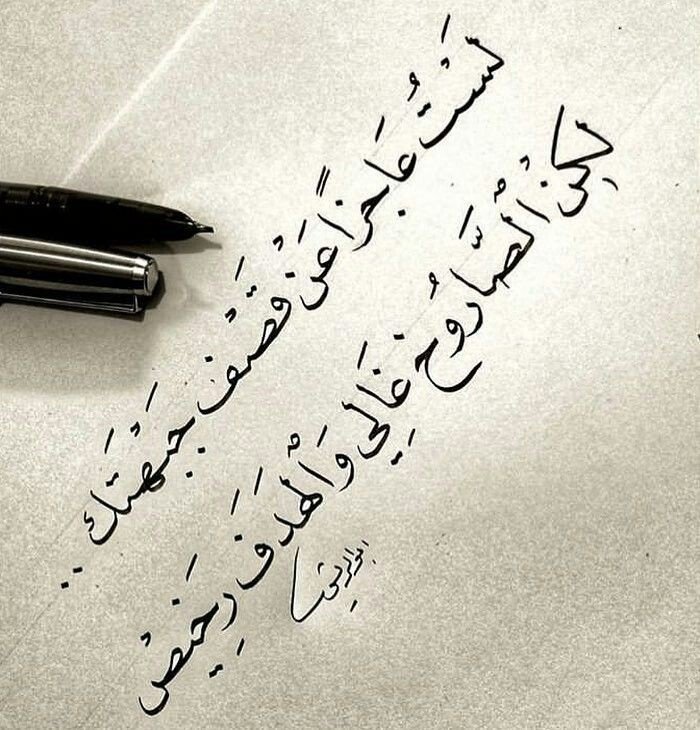 لَسْتُ عَاجزاً عَنْ قَصْفِ جَبْهَتك ..
لكِنْ الْصَّارُوخ غَالِي وَالْهَدَف رَخِيصْ